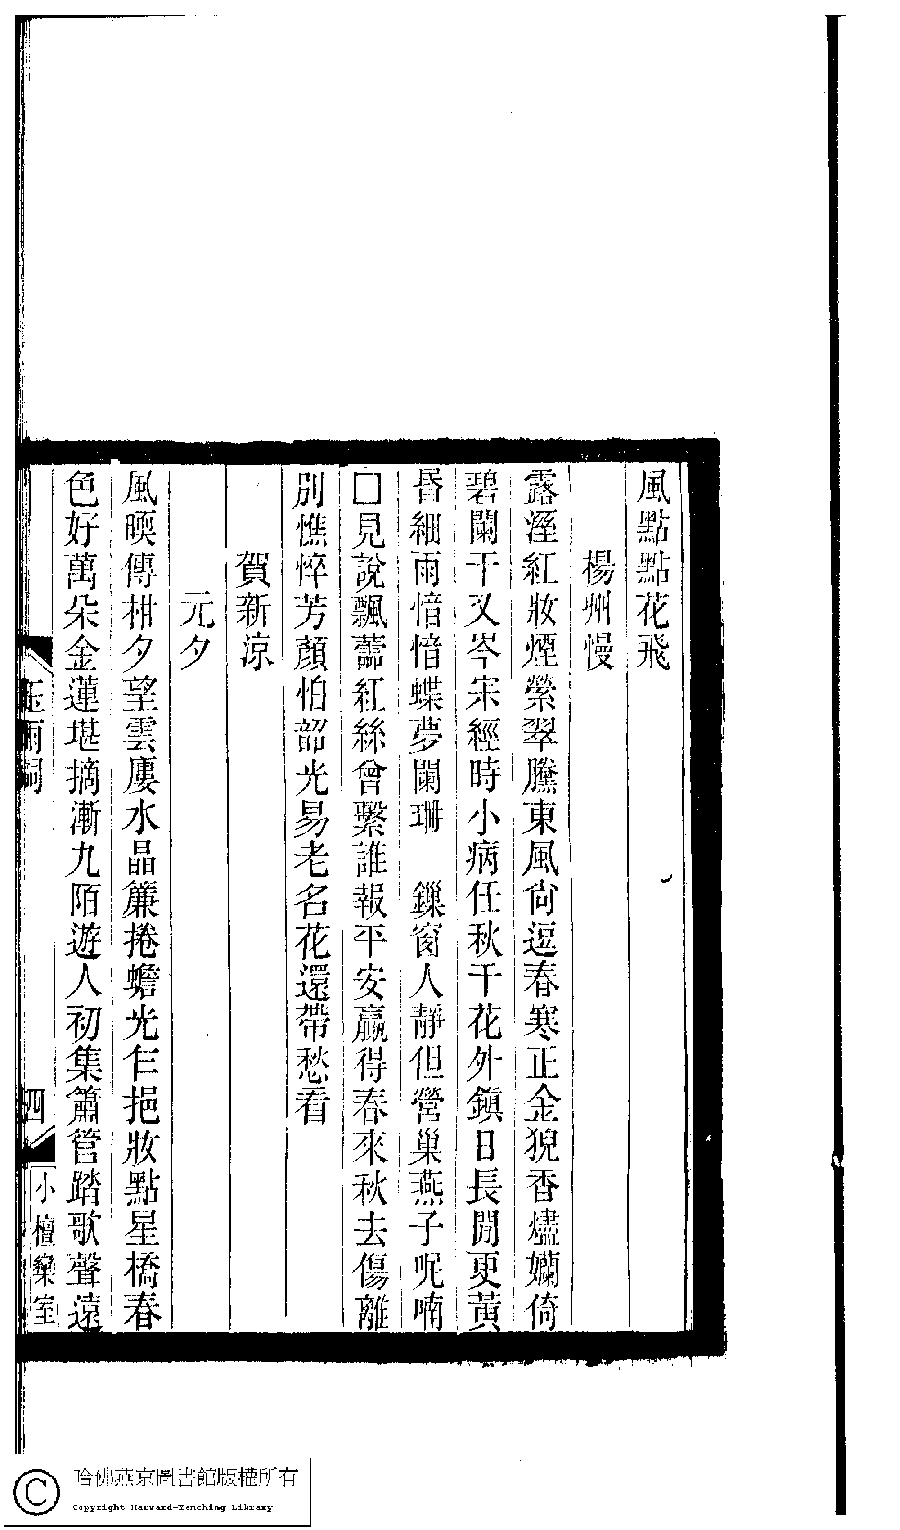 風點點花飛
楊州慢
露溼紅妝煙縈翠螣東風尙逗春寒正金猊香燼嬾倚
碧闌干又岑宋經時小病任秋千花外鎮日長閒更黃
昏細雨愔愔蝶夢闌珊　鏁窗人靜但營巢燕子呢喃
□見說飄蘦紅絲曾繫誰報平安贏得春來秋去傷離
別憔悴芳顏怕韶光易老名花還帶愁看
賀新涼
元夕
風暝傳柑夕望雲廔水晶簾捲蟾光乍挹妝點星橋春
色好萬朵金蓮堪摘漸九陌遊人初集簫管踏歌聲遠
玉雨詞
四
小檀欒室
哈佛燕京圖書館版權所有
Copyright Harvard-Yenching Library